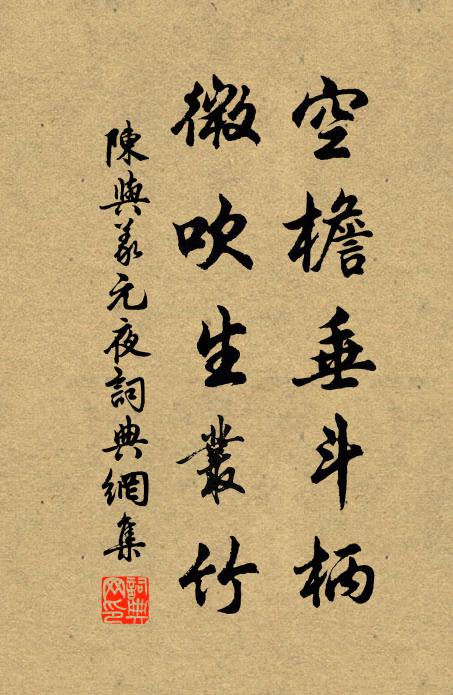 空檐垂斗柄
微吹生叢竹
陳與義元夜詞典網集
詞典網印